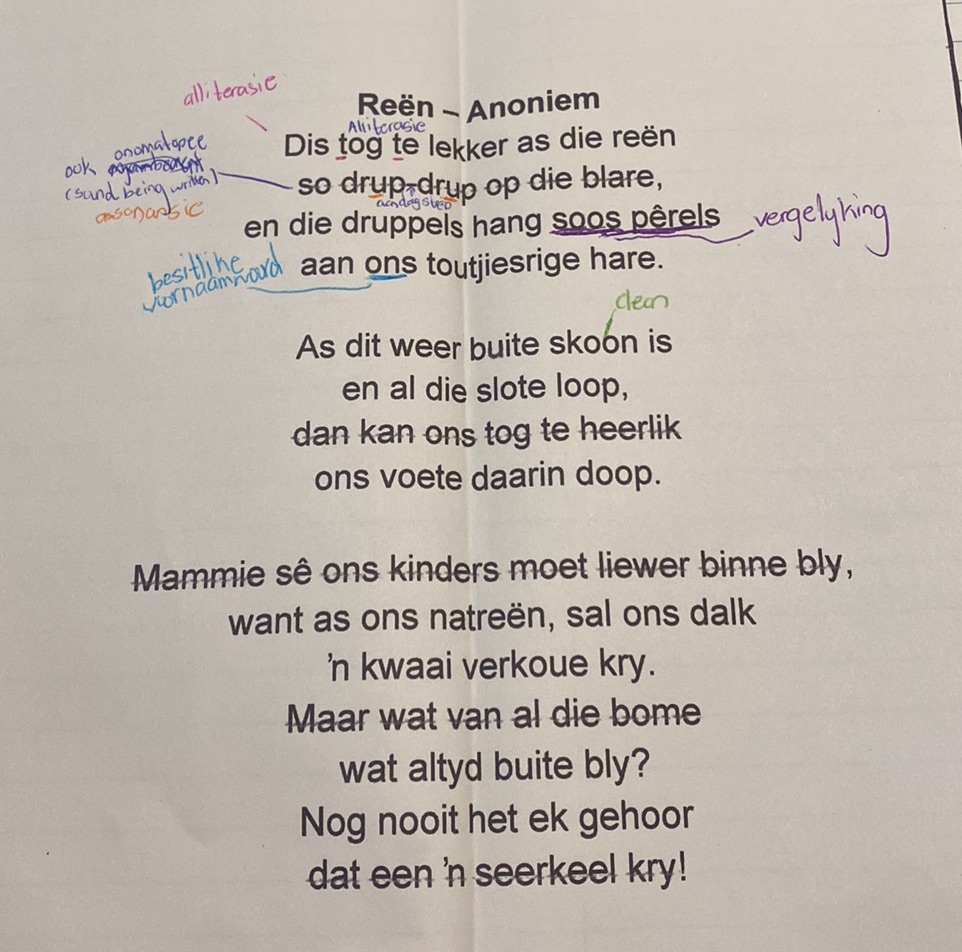 alliterasie
Reën – Anoniem
Alliterasie
Dis tog te lekker as die reën
onomatopee
ook
(sund being written)
assonansie
so drup-drup op die blare,
aandagstreep
en die druppels hang soos pêrels
vergelyking
besitlike
voornaamword
aan ons toutjiesrige hare.
clean
As dit weer buite skoon is
en al die slote loop,
dan kan ons tog te heerlik
ons voete daarin doop.
Mammie sê ons kinders moet liewer binne bly,
want as ons natreën, sal ons dalk
'n kwaai verkoue kry.
Maar wat van al die bome
wat altyd buite bly?
Nog nooit het ek gehoor
dat een 'n seerkeel kry!